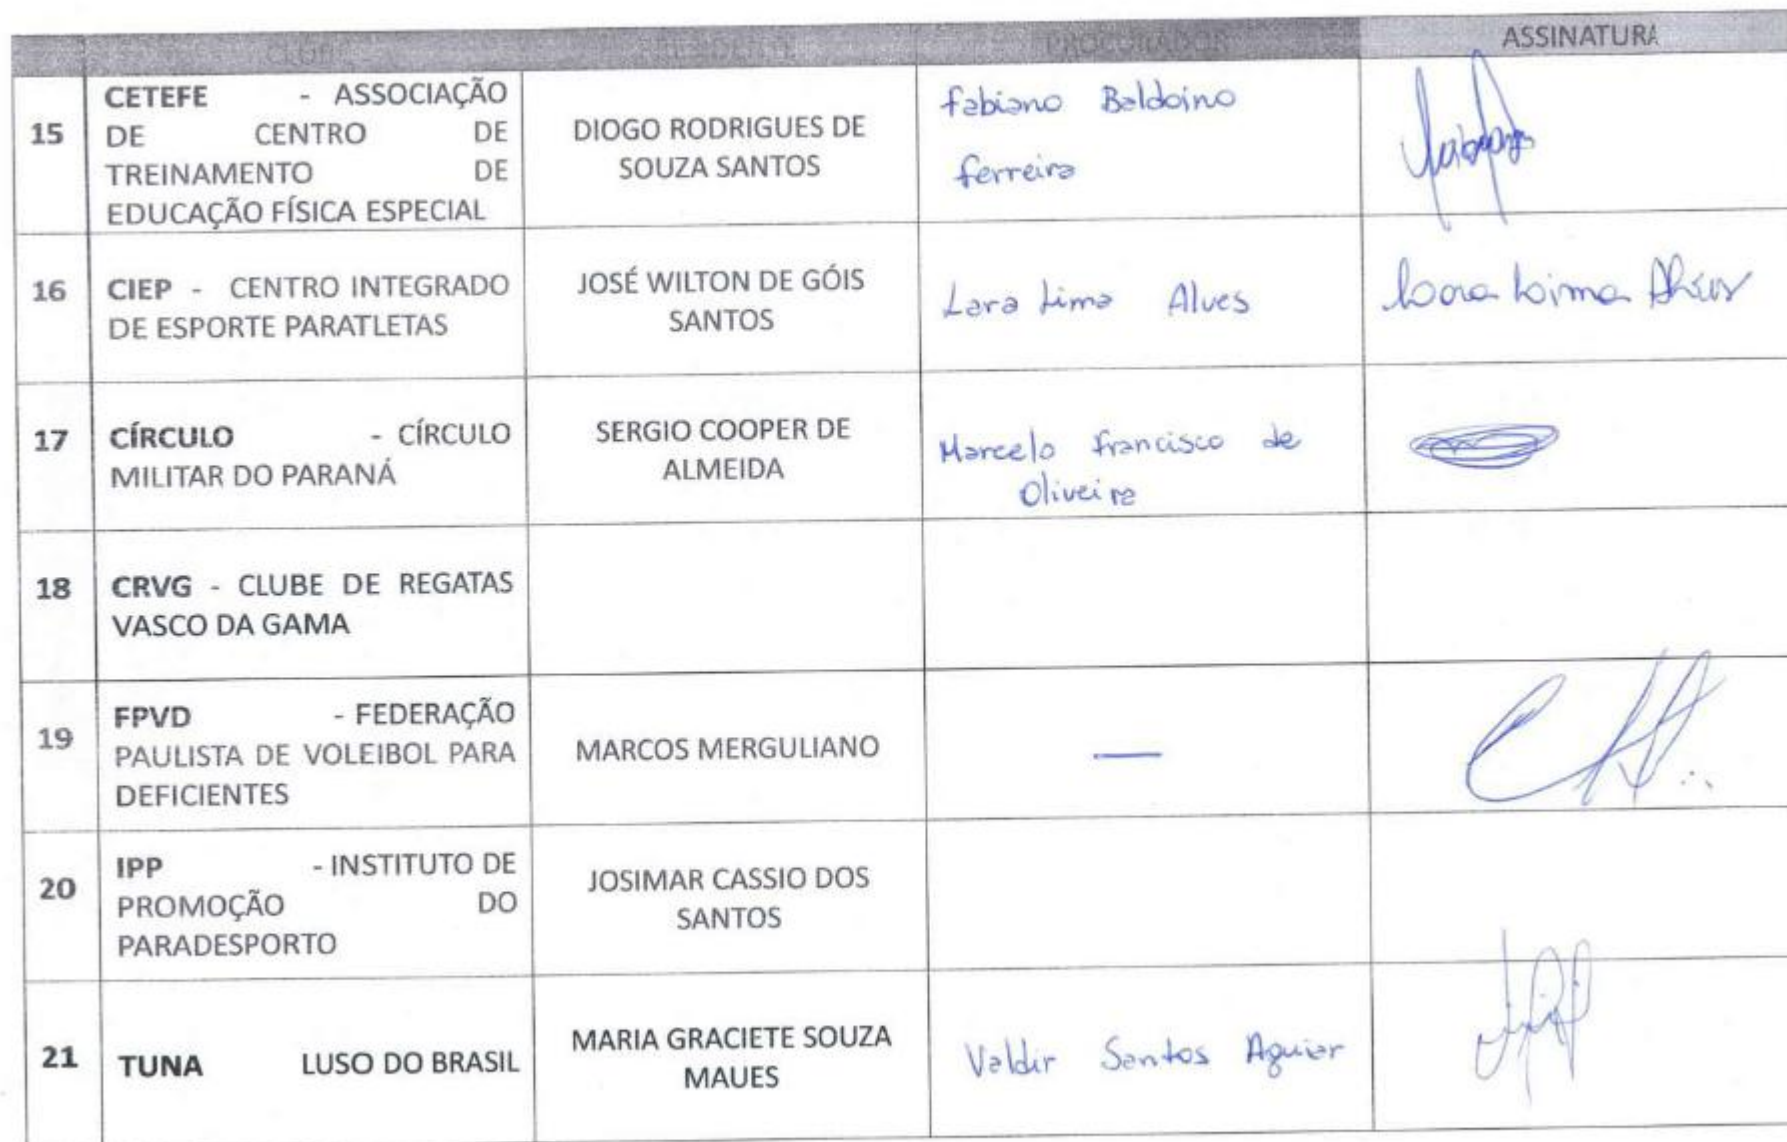 CLUBE PRESIDENTE PROCURADOR ASSINATURA
15
CETEFE - ASSOCIAÇÃO
DE CENTRO DE
TREINAMENTO DE
EDUCAÇÃO FÍSICA ESPECIAL
DIOGO RODRIGUES DE
SOUZA SANTOS
Fabiano Baldoino
Ferreira
16
CIEP - CENTRO INTEGRADO
DE ESPORTE PARATLETAS
JOSÉ WILTON DE GÓIS
SANTOS
Lara Lima Alves
Lara Lima Alves
17
CÍRCULO - CÍRCULO
MILITAR DO PARANÁ
SERGIO COOPER DE
ALMEIDA
Marcelo Francisco de
Oliveira
18
CRVG - CLUBE DE REGATAS
VASCO DA GAMA
19
FPVD - FEDERAÇÃO
PAULISTA DE VOLEIBOL PARA
DEFICIENTES
MARCOS MERGULIANO
—
20
IPP - INSTITUTO DE
PROMOÇÃO DO
PARADESPORTO
JOSIMAR CASSIO DOS
SANTOS
21
TUNA LUSO DO BRASIL
MARIA GRACIETE SOUZA
MAUES
Valdir Santos Aguiar